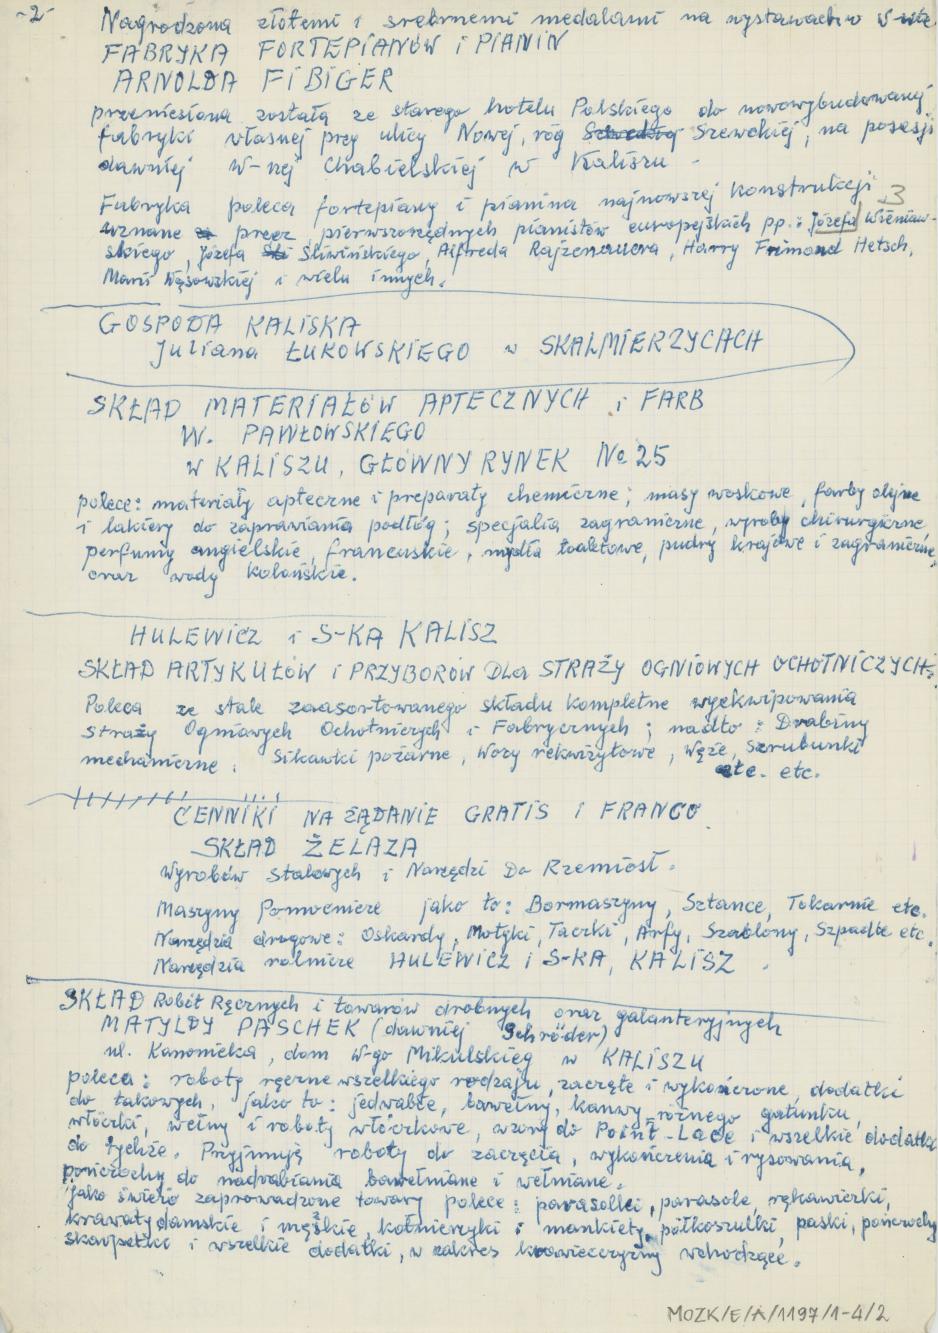 -2-
Nagrodzona złotemi i srebrnemi medalami na wystawach w
FABRYKA FORTEPIANÓW i PIANIN
ARNOLDA FIBIGER
przeniesiona została ze starego hotelu Polskiego do nowowybudowanej
fabryki własnej przy ulicy Nowej, róg Szewckiej, na posesji
dawniej W-nej Chabielskiej w Kaliszu -
3
Fabryka poleca fortepiany i pianina najnowszej konstrukcji
uznane przez pierwszorzędnych pianistów europejskich pp.: Józefa Wieniaw-
skiego, Józefa Śliwińskiego, Alfreda Rajzenauera, Harry Frimond Hetsch,
Marii Wąsowskiej i wielu innych.
GOSPODA KALISKA
Juliana ŁUKOWSKIEGO w SKALMIERZYCACH
SKŁAD MATERIAŁÓW APTECZNYCH i FARB
W. PAWŁOWSKIEGO
w KALISZU, GŁÓWNY RYNEK No 25
poleca: materiały apteczne i preparaty chemiczne; masy woskowe, farby olejne
i lakiery do zaprawiania podłóg; specjalia zagraniczne, wyroby chirurgiczne
perfumy angielskie, francuskie, mydła toaletowe, pudry krajowe i zagraniczne,
oraz wody kolońskie.
HULEWICZ i S-KA KALISZ
SKŁAD ARTYKUŁÓW i PRZYBORÓW Dla STRAŻY OGNIOWYCH OCHOTNICZYCH:
Poleca ze stale zaasortowanego składu kompletne wyekwipowania
straży Ogniowych Ochotniczych i Fabrycznych; nadto: Drabiny
mechaniczne, Sikawki pożarne, Wozy rekwizytowe, Węże, Szrubunki
etc. etc.
CENNIKI NA ŻĄDANIE GRATIS i FRANCO
SKŁAD ŻELAZA
Wyrobów stalowych i Narzędzi Do Rzemiosł.
Maszyny Pomocnicze jako to: Bormaszyny, Sztance, Tokarnie etc.
Narzędzia drogowe: Oskardy, Motyki, Taczki, Arfy, Szablony, Szpadle etc.
Narzędzia rolnicze HULEWICZ i S-KA, KALISZ.
SKŁAD Robót Ręcznych i towarów drobnych oraz galanteryjnych
MATYLDY PASCHEK (dawniej Schröder)
ul. Kanonicka, dom W-go Mikulskieg w KALISZU
poleca: roboty ręczne wszelkiego rodzaju, zaczęte i wykończone, dodatki
do takowych, jako to: jedwabie, bawełny, kanwy różnego gatunku,
włóczki, wełny i roboty włóczkowe, wzory do Point-Lace i wszelkie dodatki
do tychże. Przyjmuję roboty do zaczęcia, wykończenia i rysowania,
pończochy do nadrabiania bawełniane i wełniane.
Jako świeżo zaprowadzone towary polece: parasolki, parasole, rękawiczki,
krawaty damskie i męskie, kołnierzyki i mankiety, półkoszulki, paski, pończochy
skarpetki i wszelkie dodatki, w zakres krawiecczyzny wchodzące.
MOZK/E/A/1197/1-4/2